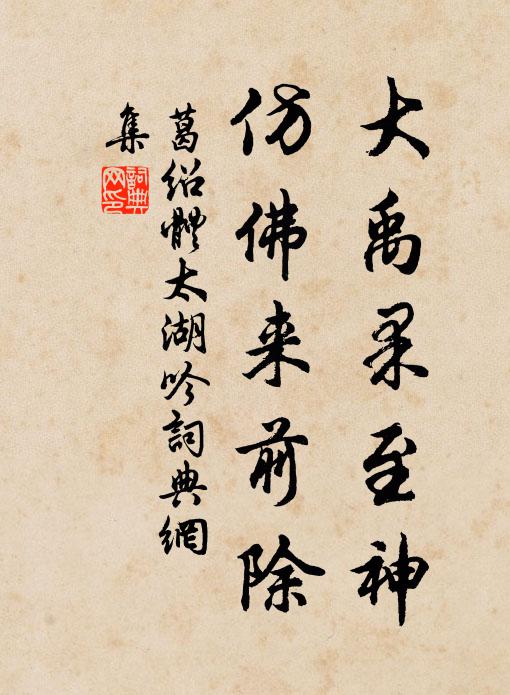 大禹果至神
仿佛来前除
葛绍體太湖吟詞典網
集
詞典
网印